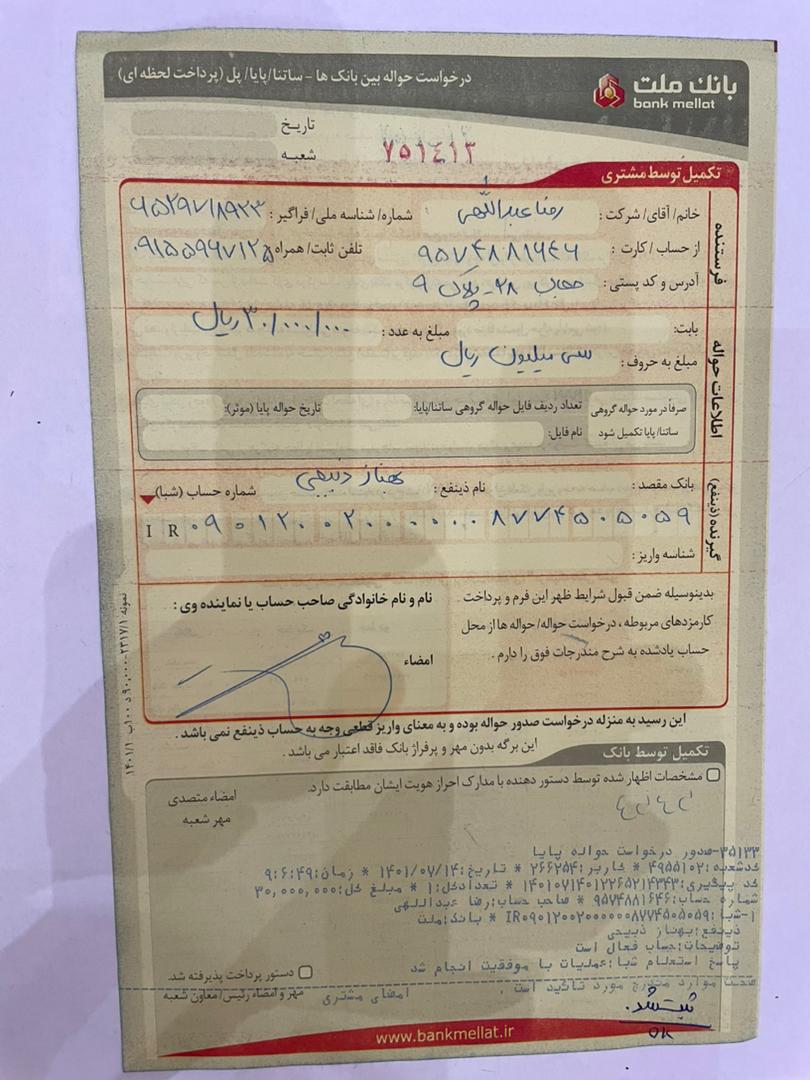 بانک ملت
bank mellat
درخواست حواله بین بانک ها - ساتنا/پایا/پل (پرداخت لحظه ای)
تاریخ
شعبه
۷۵۱۴۱۳
تکمیل توسط مشتری
فرستنده
خانم/ آقای/ شرکت : رضا عبداللهی شماره/ شناسه ملی/ فراگیر :
از حساب/ کارت : ۹۵۷۴۸۸۱۶۴۶ تلفن ثابت/ همراه :
آدرس و کد پستی : ۲۸ - پلاک ۹
اطلاعات حواله
بابت : مبلغ به عدد : ۳۰/۰۰۰/۰۰۰ ریال
مبلغ به حروف : سی میلیون ریال
صرفاً در مورد حواله گروهی ساتنا/ پایا تکمیل شود
تعداد ردیف فایل حواله گروهی ساتنا/پایا: تاریخ حواله پایا (موثر):
نام فایل:
گیرنده (ذینفع)
بانک مقصد : نام ذینفع : بهناز ذبیحی شماره حساب (شبا)
IR ۰۹۰۱۲۰۰۲۰۰۰۰۰۰۸۷۷۴۵۰۵۰۵۹
شناسه واریز :
بدینوسیله ضمن قبول شرایط ظهر این فرم و پرداخت
کارمزدهای مربوطه ، درخواست حواله/ حواله ها از محل
حساب یادشده به شرح مندرجات فوق را دارم .
نام و نام خانوادگی صاحب حساب یا نماینده وی :
امضاء
این رسید به منزله درخواست صدور حواله بوده و به معنای واریز قطعی وجه به حساب ذینفع نمی باشد .
این برگه بدون مهر و پرفراژ بانک فاقد اعتبار می باشد .
تکمیل توسط بانک
مشخصات اظهار شده توسط دستور دهنده با مدارک احراز هویت ایشان مطابقت دارد.
امضاء متصدی
مهر شعبه
۳۵۱۳۳-صدور درخواست حواله پایا
کدشعبه:۴۹۵۵۱۰۲ * کاربر:۲۶۶۲۵۴ * تاریخ:۱۴۰۱/۰۷/۱۴ * زمان:۹:۶:۴۹
کد پیگیری:۱۴۰۱۰۷۱۴۰۱۲۲۶۵۲۱۴۳۴۳ * تعدادکل:۱ * مبلغ کل:۳۰,۰۰۰,۰۰۰
شماره حساب:۹۵۷۴۸۸۱۶۴۶ * صاحب حساب:رضا عبداللهی
۱-شبا:IR۰۹۰۱۲۰۰۲۰۰۰۰۰۰۸۷۷۴۵۰۵۰۵۹ * بانک:ملت
ذینفع:بهناز ذبیحی
توضیحات:حساب فعال است
پاسخ استعلام شبا:عملیات با موفقیت انجام شد
صحت موارد مندرج مورد تائید است .
امضای مشتری
دستور پرداخت پذیرفته شد.
مهر و امضاء رئیس/ معاون شعبه
ثبت شد.
OK
www.bankmellat.ir